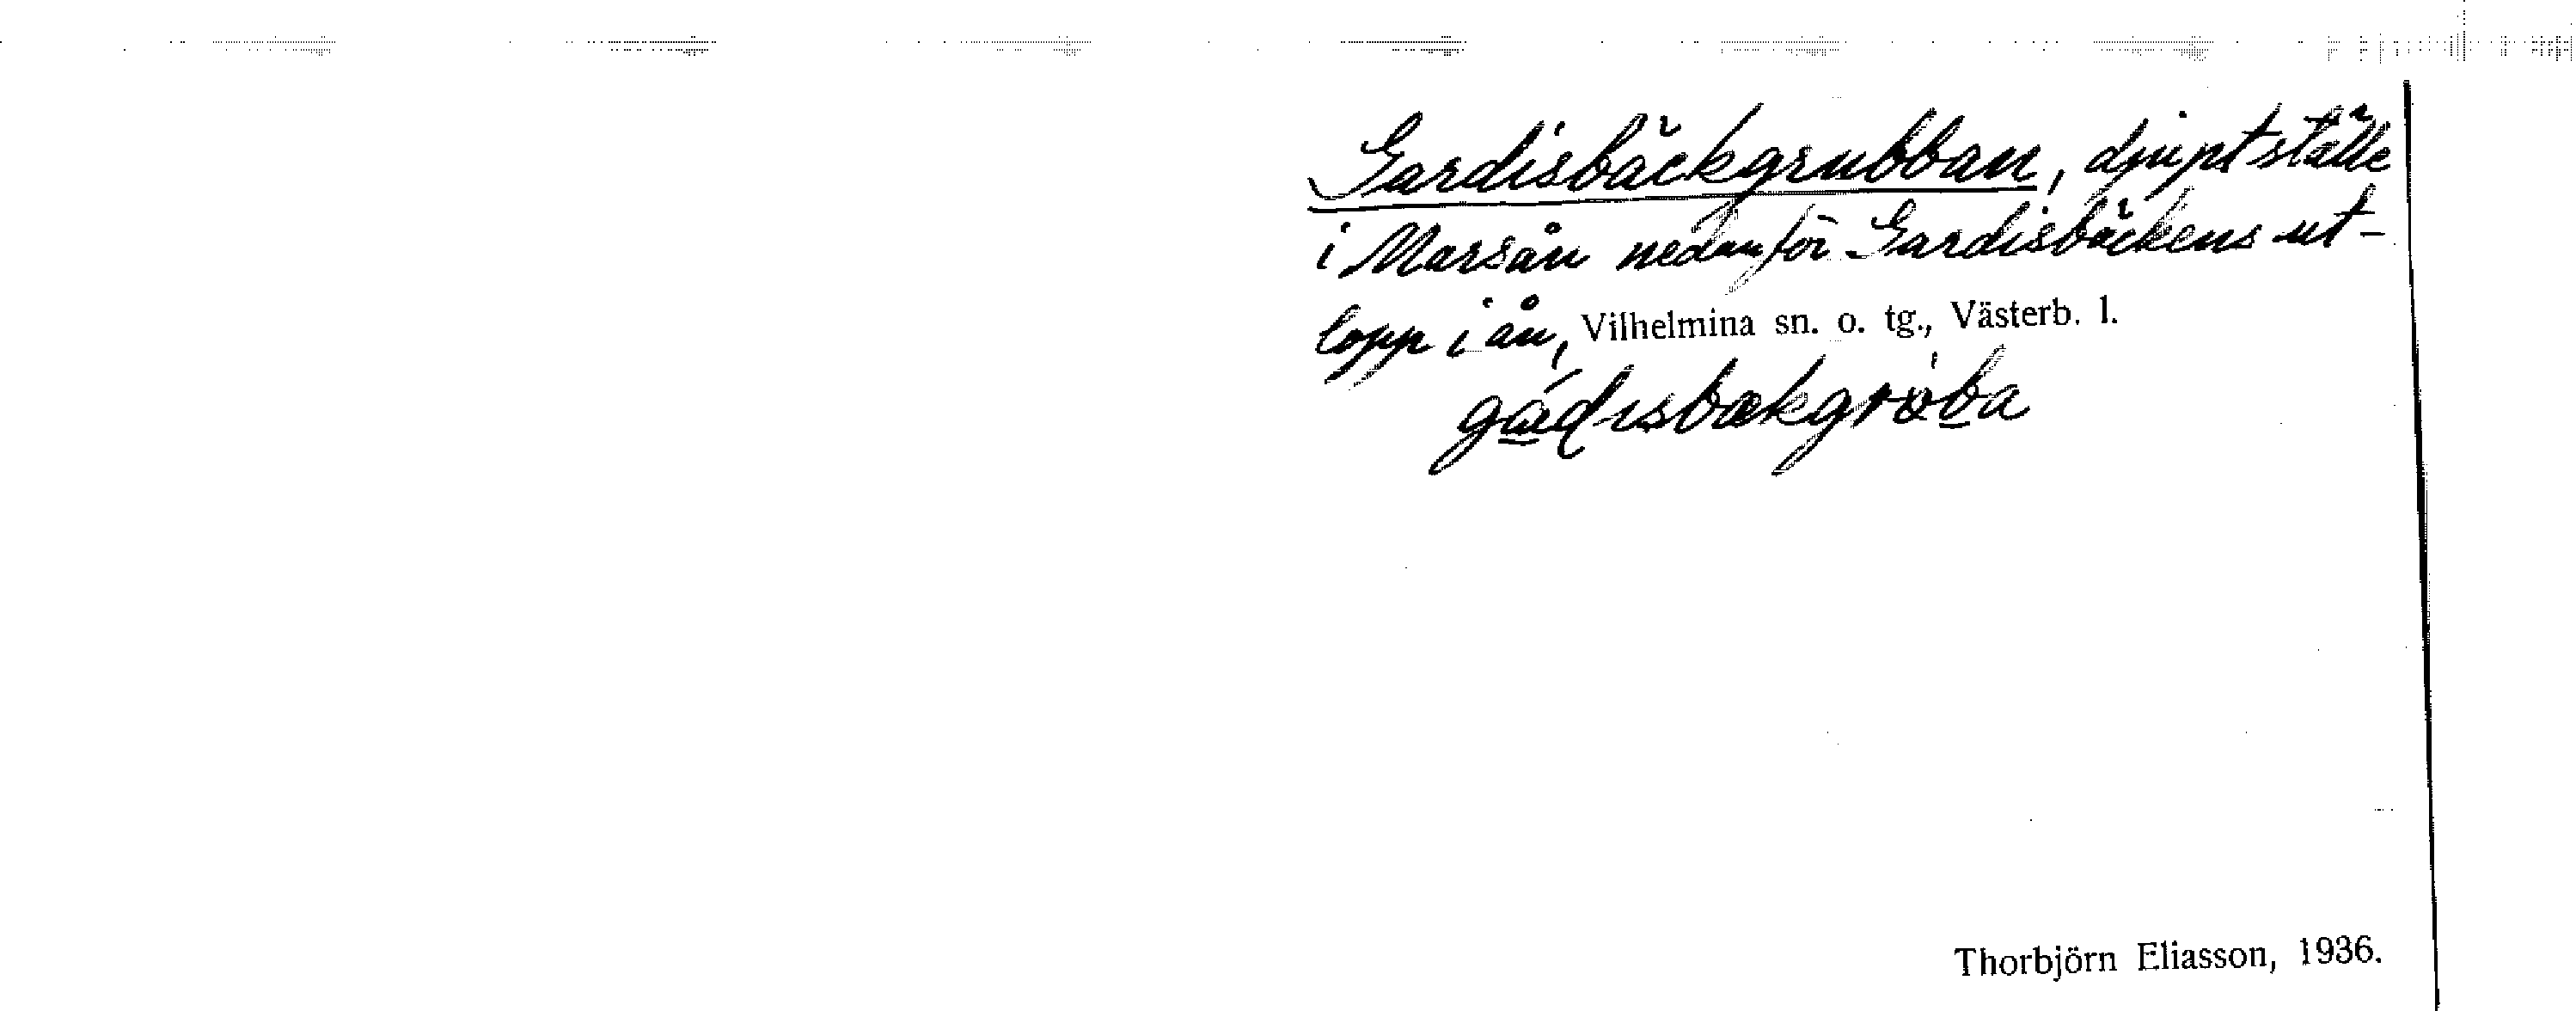 Gardisbäckgrubban, djupt ställe
i Marsån nedanför Gardisbäckens ut-
lopp i ån, Vilhelmina sn. o. tg., Västerb. l.
Thorbjörn Eliasson, 1936.